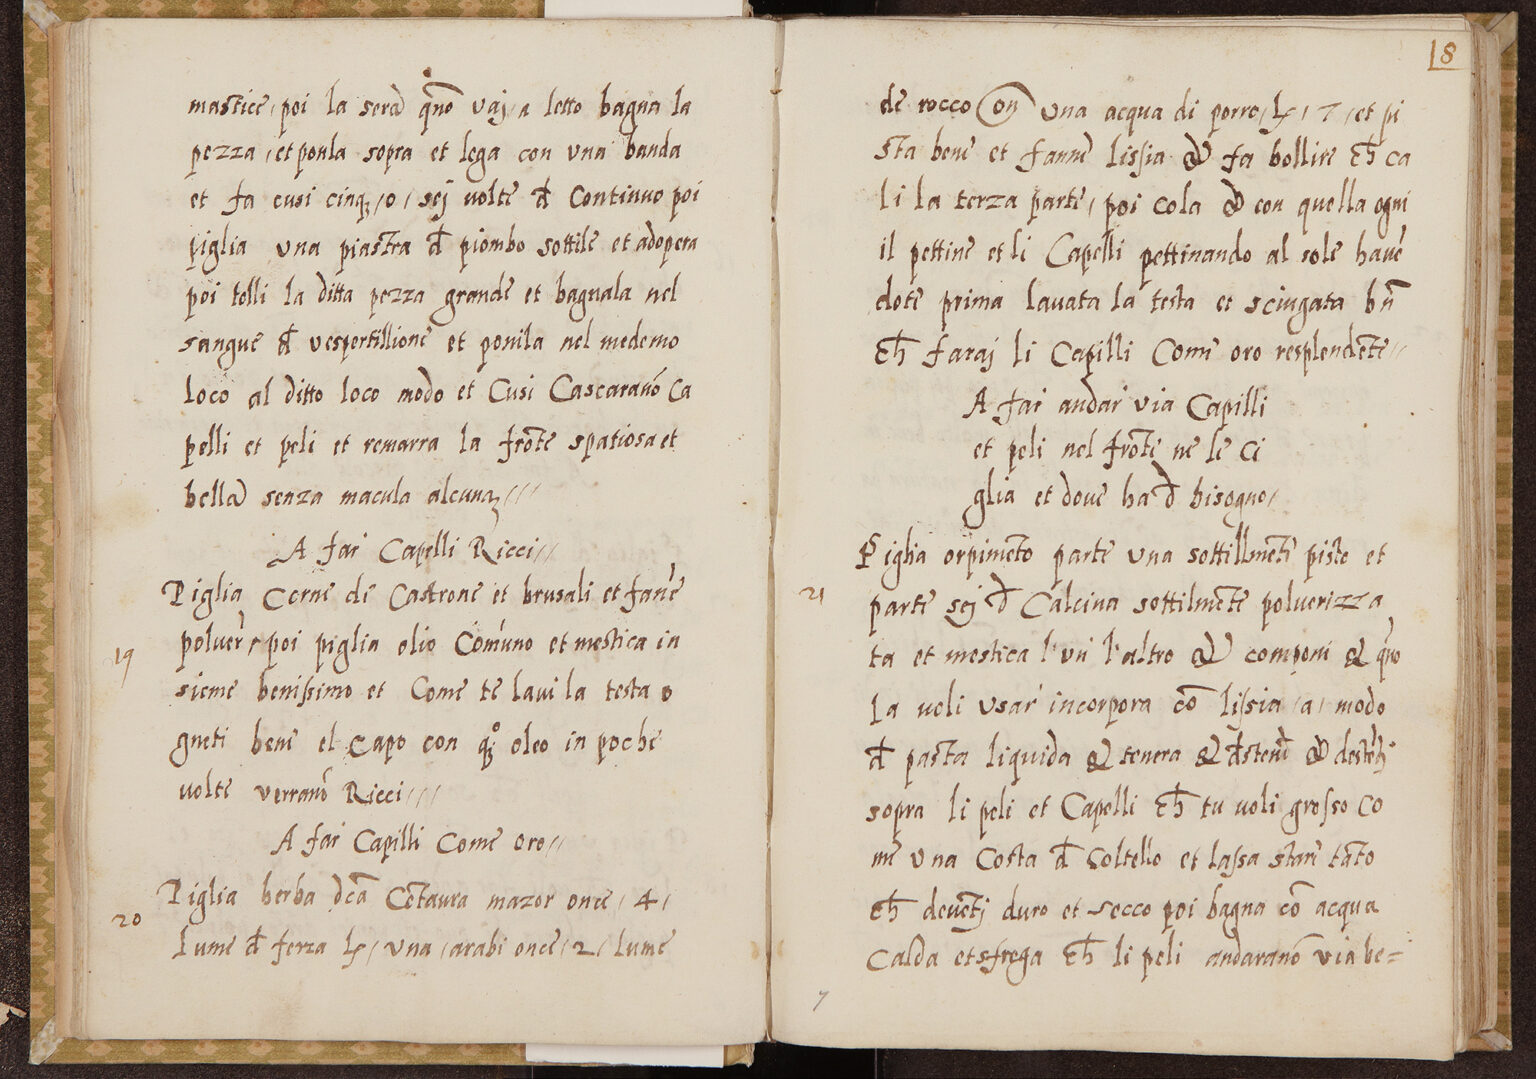 mastice, poi la sera qño vaj, a letto bagna la
pezza, et ponla sopra et lega con una banda
et fa cusi cinq, o, sej volte đ Continuo poi
piglia una piastra đ piombo sottile et adopera
poi tolli la ditta pezza grande et bagnala nel
sangue đ vespertillione et ponila nel medemo
loco al ditto loco modo et Cusi Cascaranõ Ca
pelli et peli et remarra la frõte spatiosa et
bella senza macula alcuna///
A far Capelli Ricci//
19
Piglia Corne de Castrone et brusali et fane
polver, poi piglia olio Comuno et mestica in
sieme benissimo et Come te lavi la testa o
gneti bene el Capo con q̃ oleo in poche
volte verranõ Ricci///
A far Capilli Come oro//
20
Piglia herba dcã Cẽtaura mazor once, 4,
Lume đ ferza ℔, una, arabi once, 2, lume
18
de rocco on̄ una acqua di porro, ℔, 7, et pi
sta bene et fanne lissia & fa bollire ch̄ ca
li la terza parte, poi cola & con quella ogni
il pettine et li Capelli pettinando al sole havē
dote prima lavata la testa et sciugata bñ
ch̄ faraj li Capilli Come oro resplendẽte//
A far andar via Capilli
et peli nel frõte ne le Ci
glia et dove ha đ bisogno,
21
Piglia orpimẽto parte una sottillmẽte pisto et
parte sej đ Calcina sottilmẽte polverizza
ta et mestica l'un l'altro & componi & qño
La voli usar incorpora cõ lissia, a, modo
đ pasta liquida & tenera &
sopra li peli et Capelli ch̄ tu voli grosso Co
me una Costa đ Coltello et lassa stare tãto
ch̄ devẽtj duro et secco poi bagna cõ acqua
Calda et sfrega ch̄ li peli andaranõ via be=
7